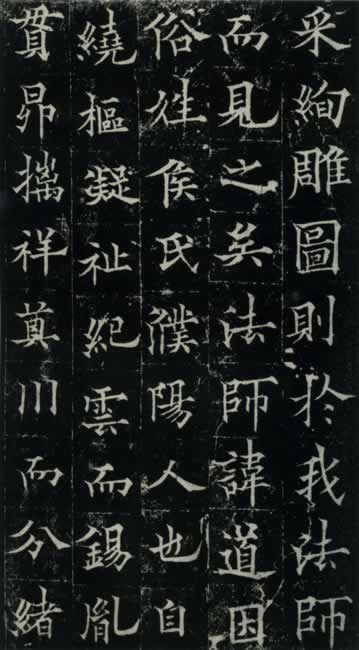 采絢雕圖則於我法師
而見之矣法師諱道因
俗姓侯氏濮陽人也自
繞樞凝祉紀雲而錫胤
貫昴摛祥奠川而分緒